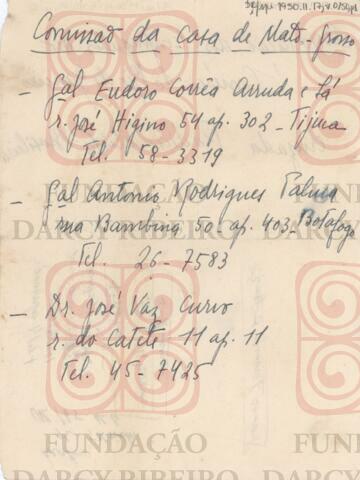 Comissão da Casa de Mato-Grosso
- Gal Eudoro Corrêa Arruda e Sá
r. José Higino 54 ap. 302 - Tijuca
Tel. 58-3319
- Gal Antonio Rodrigues Palma
rua Bambina 50 - ap. 403 - Botafogo
Tel. 26-7583
- Dr. José Vaz Curvo
r. do Catete 11 ap. 11
Tel. 45-7425
FUNDAÇÃO
DARCY RIBEIRO
FUNDAÇÃO
DARCY RIBEIRO